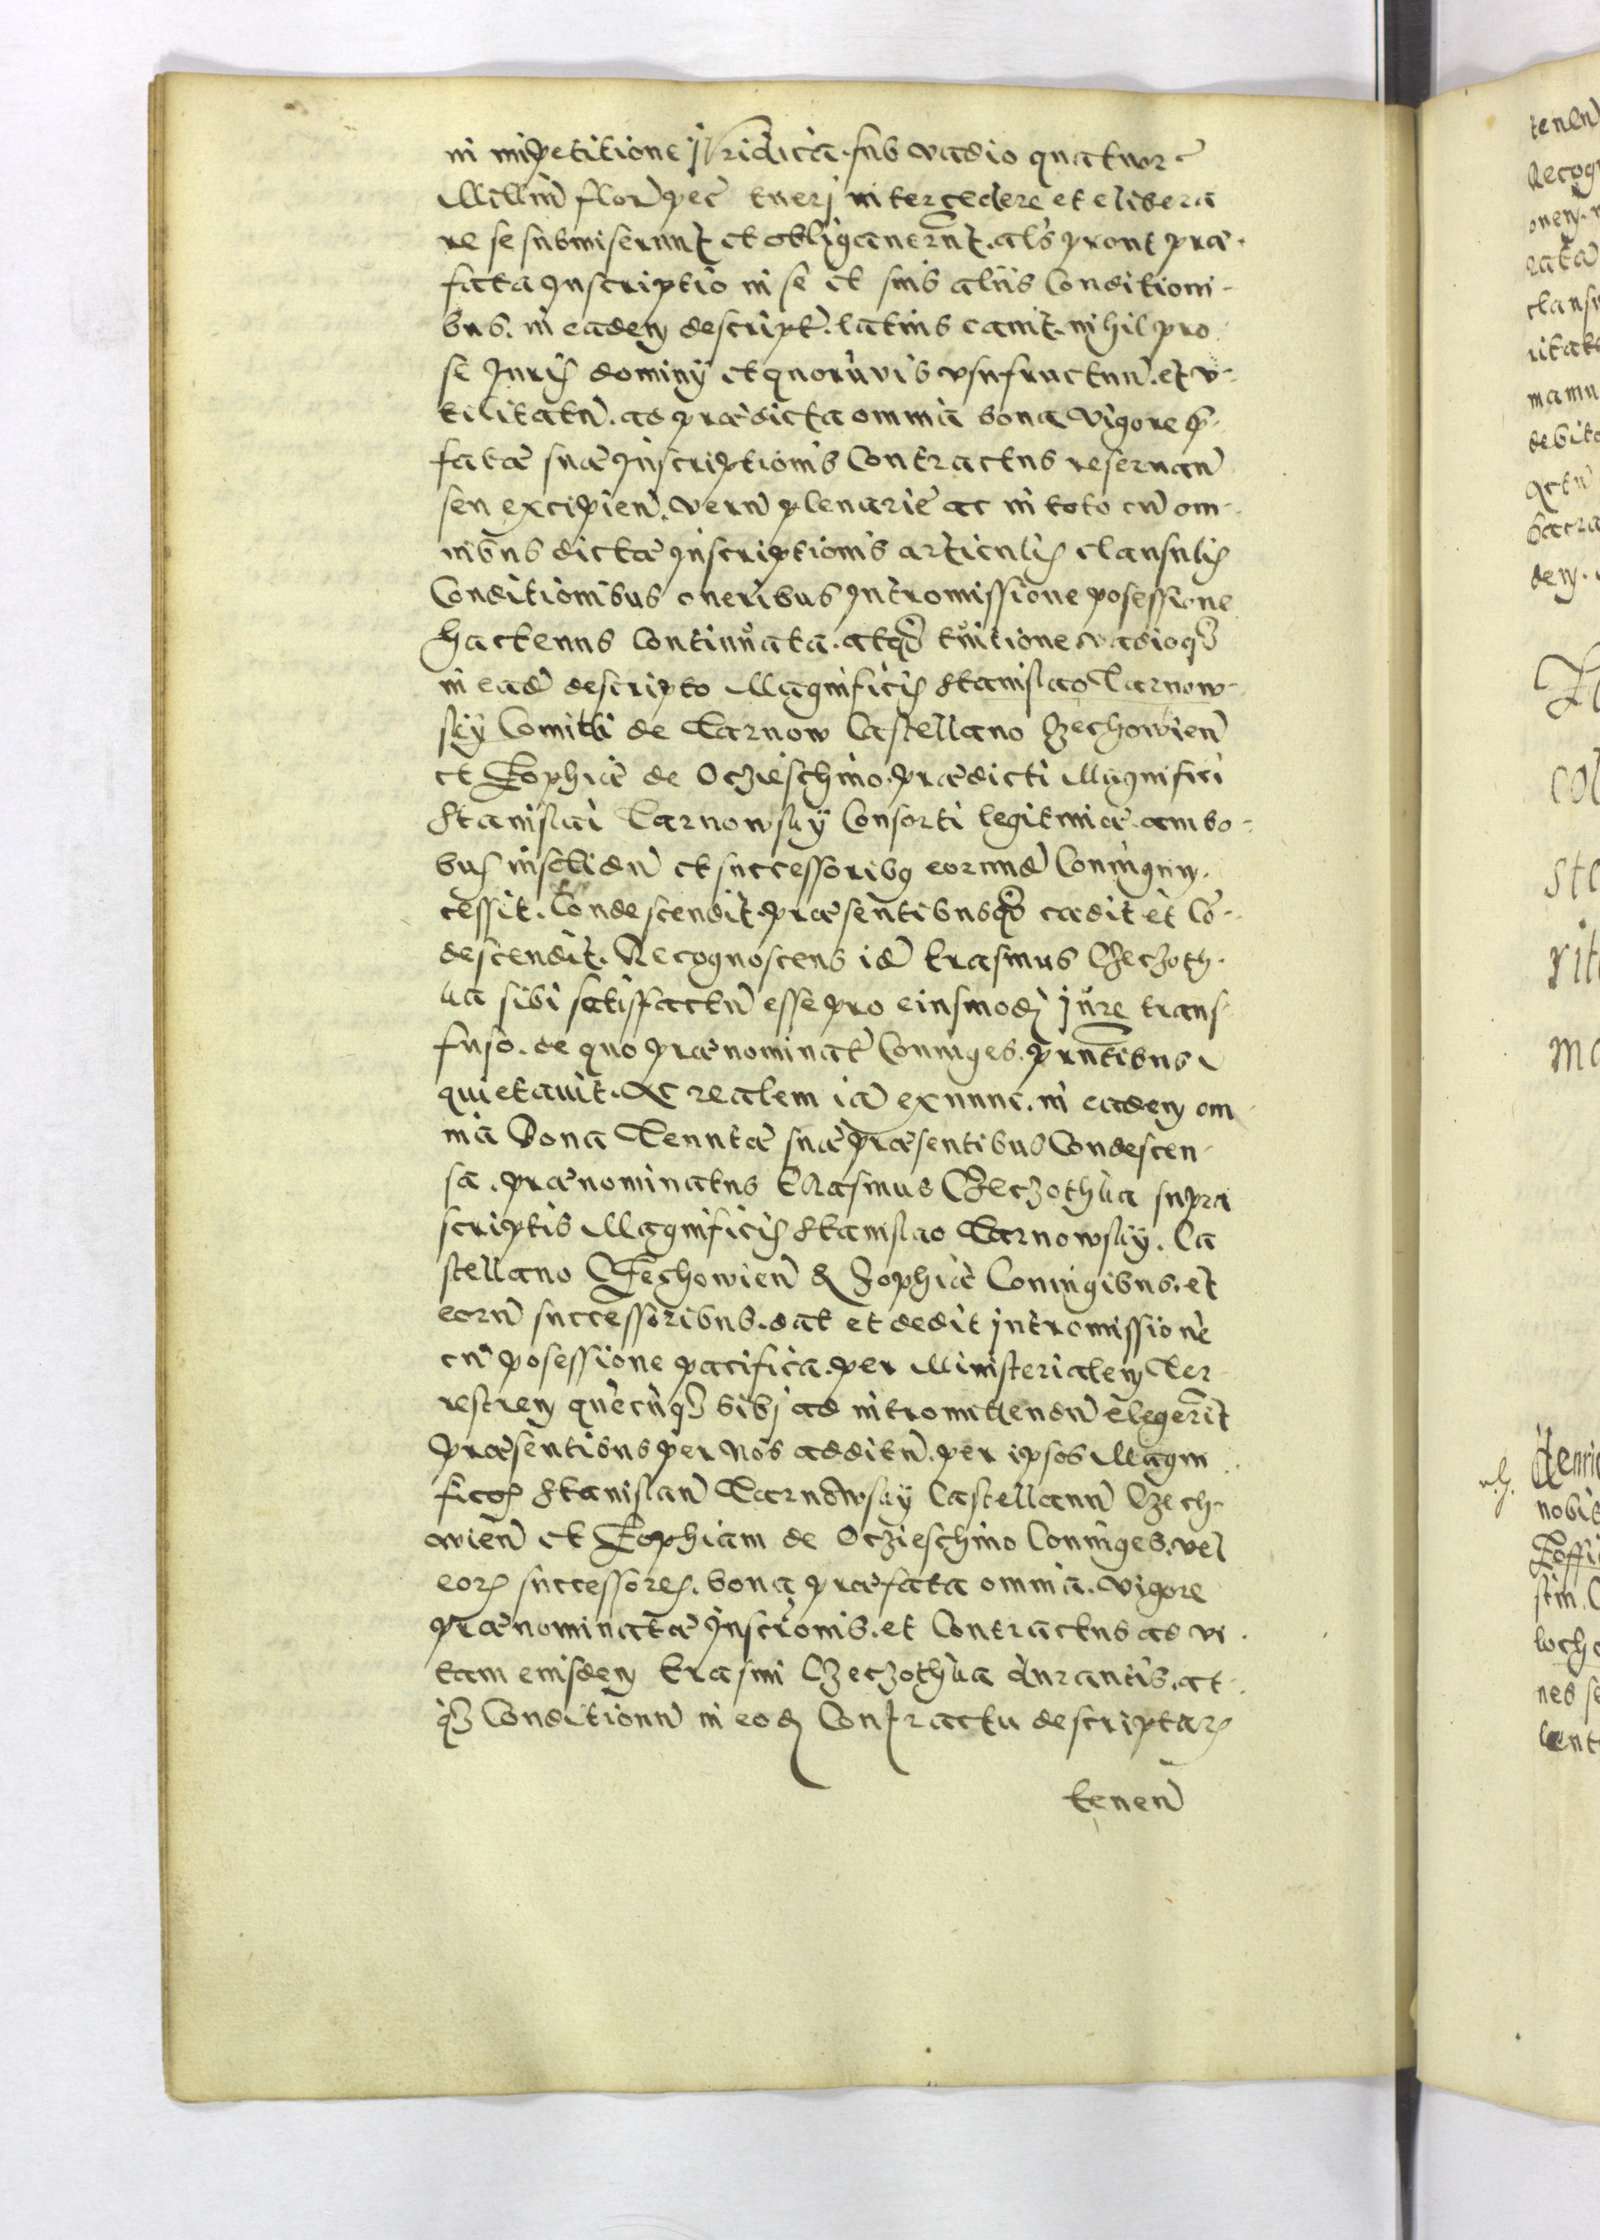 in impetitione iuridica. sub vadio quatuor
Milliũ florẽ pec̃ tuerj intercedere et elibera
re se submiserunt et obliganerũt. als̃ prout præ-
fata Inscriptio in se et suis aliis Conditioni-
bus. in eadem descript̃. latius canit. nihil pro
se Juris dominij et quorũuis vsufructuũ. et v-
tilitatũ. ad prædicta omnia bona vigore p̃-
fatæ suæ Inscriptionis Contractus reseruan̄
seu excipien̄. verũ plenarie ac in toto cũ om-
nibus dictæ Inscriptionis articulis clausulis
Conditionibus oneribus Intromissione posessione
hactenus continuata. atqȝ tuitione vadioqȝ
in eadẽ descripto Magnificis Stanislao Tarnow-
sky Comiti de Tarnow Castellano Czechowien̄
et Zophiæ de Oczieschino. prædicti Magnifici
Stanislai Tarnowsky Consorti legitimæ. ambo-
bus insolidũ et successoribꝰ eorundẽ Coniugum.
cessit. Condescendit. præsentibusqȝ cædit et Cõ-
descendit. Recognoscens idẽ Erasmus Czeczoth-
ka sibi satisfactũ esse pro eiusmodj iure trans-
fuso. de quo prænominat̃ Coniuges. prñtibus
quietauit. Ac realem iã ex nunc. in eadem om
nia Bona Tenutæ suæ præsentibus Condescen-
sa. prænominatus Erasmus Czeczothka supra
scriptis Magnificis Stanislao Tarnowsky. Ca
stellano Czechowien̄ & Zophiæ Coniugibus. et
eorũ successoribus. dat et dedit intromissionẽ
cũ posessione pacifica. per Ministerialem Ter
restrem quẽcũqȝ sibj ad intromittendũ elegerĩt
præsentibus per nos additũ. per ipsos Magni
ficos Stanislaũ Tarnowsky Castellanũ Czech-
owien̄ et Zophiam de Oczieschino Coniuges. vel
eoꝝ successores. bona præfata omnia. vigore
prænominatæ Inscrõnis. et Contractus ad vi-
tam eiusdem Erasmi Czeczothka durantis. at-
qȝ Conditionũ in eodẽ Contractu descriptaꝝ
tenen̄